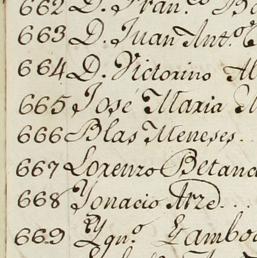 662 D. Fran.co
663 D. Juan Ant.o
664 D. Victorino
665 José Maria
666 Blas Meneses..
667 Lorenzo Betanc
668 Ygnacio Arze...
669 Ygn.o Gamboa